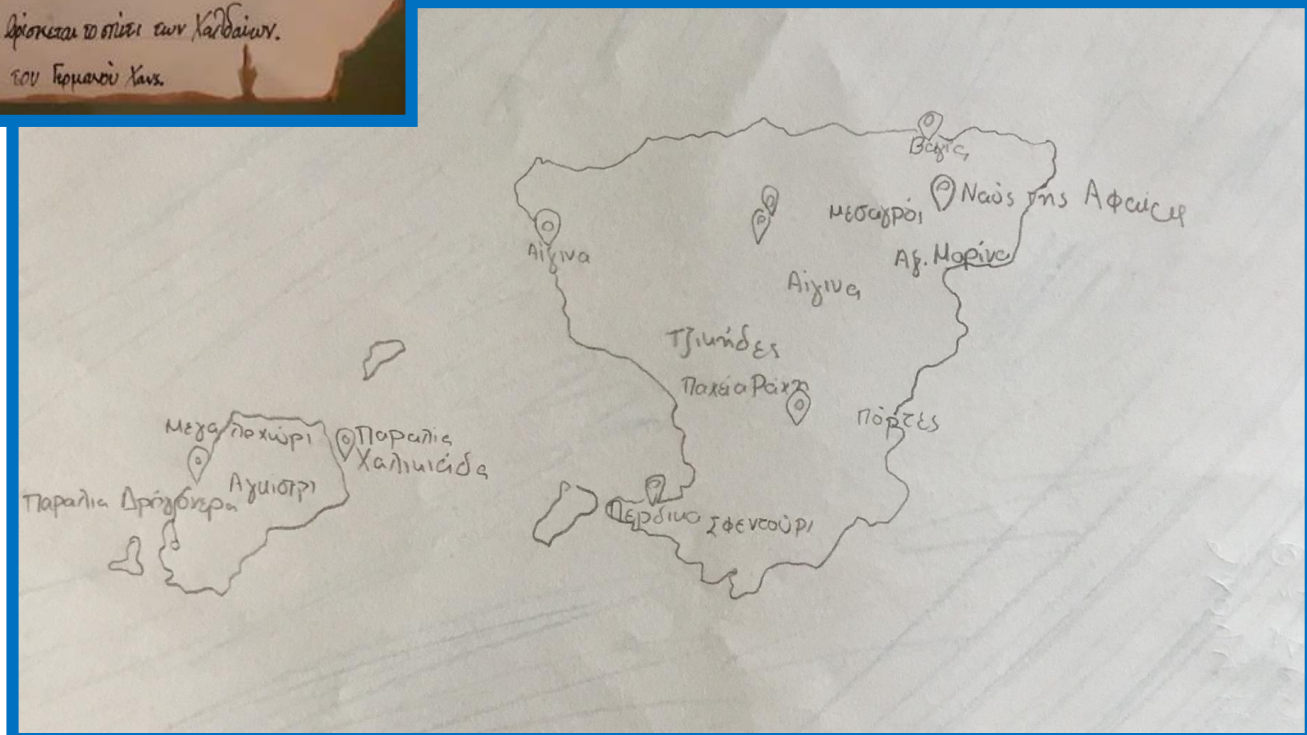 βρίσκεται το σπίτι των Χαλδαίων.
του Γερμανού Χανς.
Βαγίς
Ναὸς της Αφαίας
Μεσαγρόι
Αγ. Μαρίνα
Αίγινα
Αίγινα
Τζικίδες
Παχεία Ράχη
Πόρτες
Μεγαλοχώρι
Παραλία
Χαλικιάδα
Αγκίστρι
Παραλια
Πέρδικα
Σφεντούρι